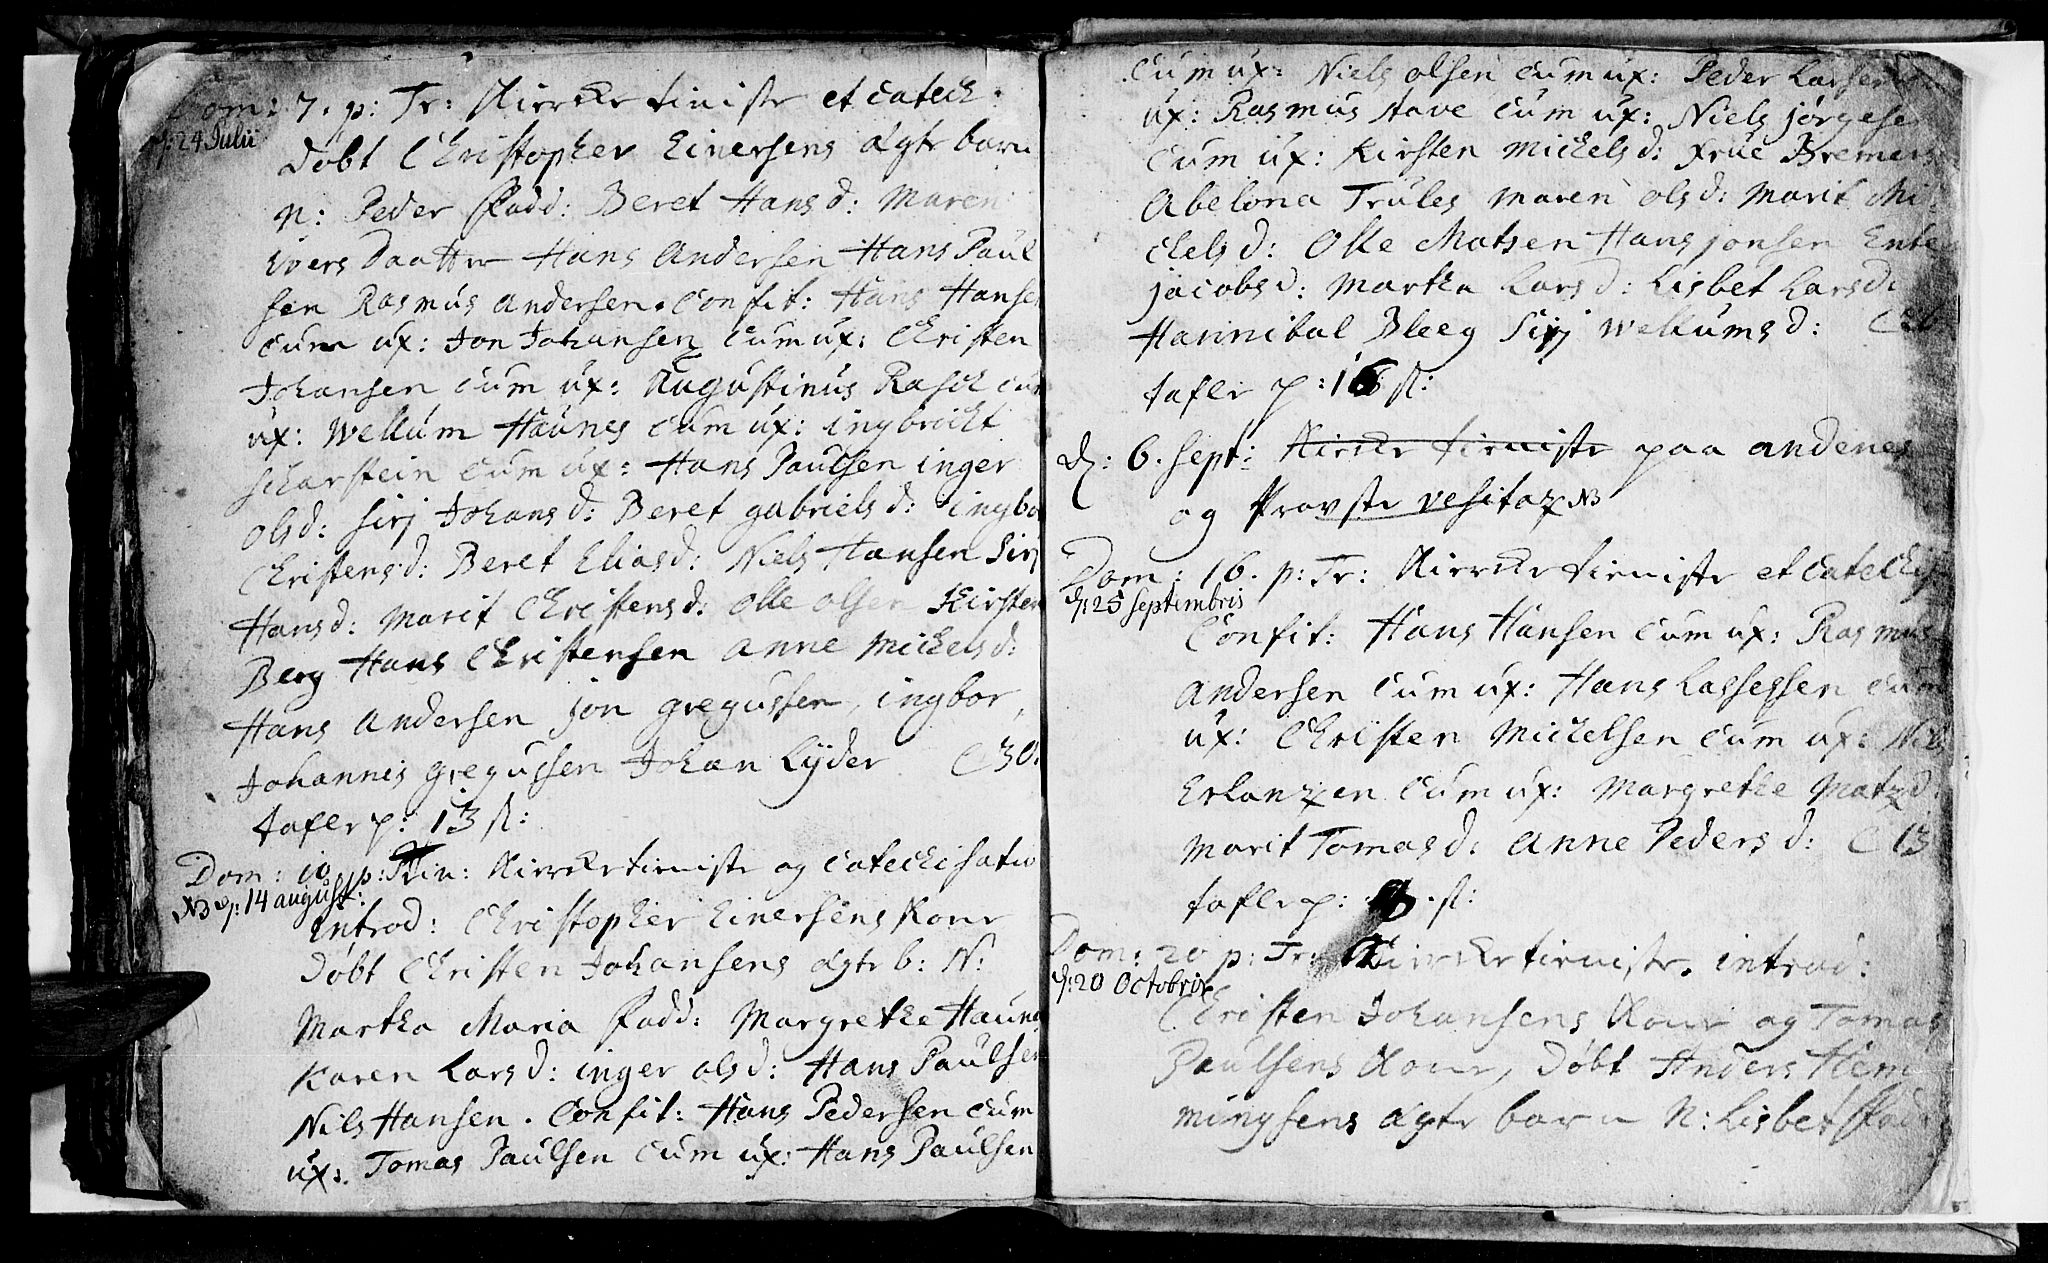 Dom: 7. p: Tr: Kircke tieniste et catech:
d: 24 Julii
Döbt Christopher Einersens ægte barn
N: Peder Fadd: Beret Hansd: Maren
Ivers Daatter Hans Andersen Hans Paul
sen Rasmus Andersen. Confit: Hans Hansen
cum ux: Jon Johansen cum ux: Christen
Johansen cum ux: Augustinus Rasch cum
ux: Wellum Haunes cum ux: ingbricht
Scharstein cum ux: Hans Paulsen inger
olsd: sirj Johansd: Beret gabrielsd: ingbor
Christensd: Beret Eliasd: Niels Hansen Sirj
Hansd: Marit Christensd: Olle olsen Kirsten
Berg Hans Christensen Anne Michelsd:
Hans Andersen jon gregussen, ingbor,
Johannis gregussen Johan Lyder C 30.
tafle p: 13 sl:
Dom: 10 p: Trin: Kircke tieniste og catechisatio
NB d: 14 august:
Introd: Christopher Einersens Kone
Döbt Christen Johansens ægte b: N:
Martha Maria Fadd: Margrethe Haunes
Karen Larsd: inger olsd: Hans Paulsen
Nils Hansen. Confit: Hans Pedersen cum
ux: Tomas Paulsen cum ux: Hans Paulsen
cum ux: Niels olsen cum ux: Peder Larsen
ux: Rasmus stave cum ux: Niels jörgese
cum ux: Kirsten Michelsd: Frue Bremers
Abelona Trules Maren olsd: Marit Mi
chelsd: Olle Matsen Hans jonsen Ente
jacobsd: Martha Larsd: Lisbet Larsd:
Hannibal Bleeg Sirj Wellumsd:
tafle p: 16 sl:
d: 6. sept: Kircke tieniste paa andenes
og Provste vesitaz NB
Dom: 16. p: Tr: Kircke tieniste et catechis
d: 25 Septembris
Confit: Hans Hansen cum ux: Rasmus
Andersen cum ux: Hans Lassessen cum
ux: Christen Michelsen cum ux: Niels
Erlanzen cum ux: Margrethe Matzd:
Marit Tomasd: Anne Pedersd: C 13
tafle p: sl:
Dom: 20 p: Tr: Kircke tieniste. introd:
d: 20 Octobris
Christen Johansens Kone og Tomas
Paulsens Kone, Döbt Anders Hem
mingsens ægte barn N: Lisbet Fadd